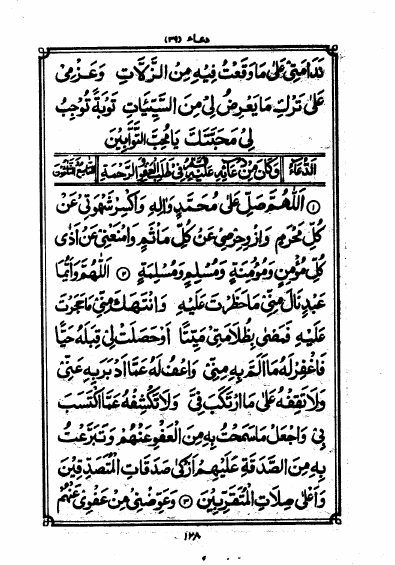 دعاء (۳۹)
نَدَامَتِیْ عَلٰی مَا وَقَعْتُ فِیْهِ مِنَ الزَّلَّاتِ وَعَزْمِیْ
عَلٰی تَرْكِ مَا یَعْرِضُ لِیْ مِنَ السَّیِّئَاتِ تَوْبَةً تُوْجِبُ
لِیْ مَحَبَّتَكَ یَا مُحِبَّ التَّوَّابِیْنَ
الدُّعَاءُ وَكَانَ مِنْ دُعَائِهِ عَلَیْهِ السَّلَامُ فِیْ طَلَبِ الْعَفْوِ وَالرَّحْمَةِ التَّاسِعُ وَالثَّلٰثُوْنَ
① اَللّٰهُمَّ صَلِّ عَلٰی مُحَمَّدٍ وَاٰلِهٖ وَاكْسِرْ شَهْوَتِیْ عَنْ
كُلِّ مَحْرَمٍ وَازْوِ حِرْصِیْ عَنْ كُلِّ مَاْثَمٍ وَامْنَعْنِیْ عَنْ اَذٰی
كُلِّ مُؤْمِنٍ وَمُؤْمِنَةٍ وَمُسْلِمٍ وَمُسْلِمَةٍ ② اَللّٰهُمَّ وَاَیُّمَا
عَبْدٍ نَالَ مِنِّیْ مَا حَظَرْتَ عَلَیْهِ وَانْتَهَكَ مِنِّیْ مَا حَجَرْتَ
عَلَیْهِ فَمَضٰی بِظُلَامَتِیْ مَیِّتًا اَوْ حَصَلَتْ لِیْ قِبَلَهٗ حَیًّا
فَاغْفِرْ لَهٗ مَا اَلَمَّ بِهٖ مِنِّیْ وَاعْفُ لَهٗ عَمَّا اَدْبَرَ بِهٖ عَنِّیْ
وَلَا تَقِفْهُ عَلٰی مَا ارْتَكَبَ فِیَّ وَلَا تَكْشِفْهُ عَمَّا اكْتَسَبَ
بِیْ وَاجْعَلْ مَا سَمَحْتُ بِهٖ مِنَ الْعَفْوِ عَنْهُمْ وَتَبَرَّعْتُ
بِهٖ مِنَ الصَّدَقَةِ عَلَیْهِمْ اَزْكٰی صَدَقَاتِ الْمُتَصَدِّقِیْنَ
وَاَعْلٰی صِلَاتِ الْمُتَقَرِّبِیْنَ ③ وَعَوِّضْنِیْ مِنْ عَفْوِیْ عَنْهُمْ
۱۲۸